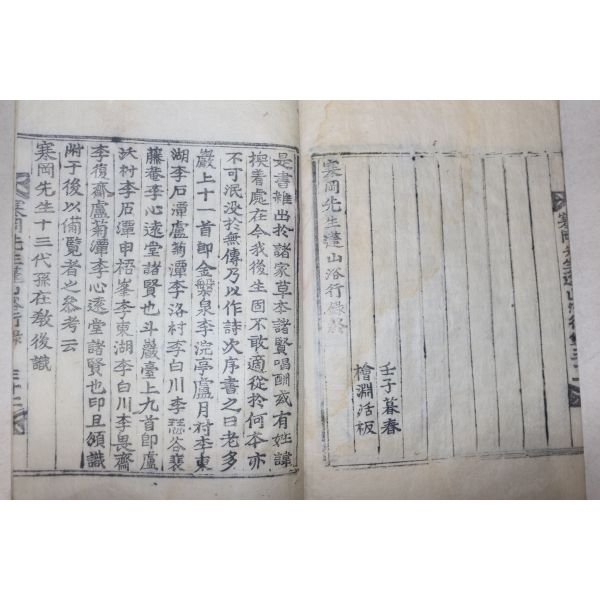 寒岡先生蓬山浴行錄 三十一
壬子暮春
檜淵活板
寒岡先生蓬山浴行錄終
是書雜出於諸家草本諸賢唱酬或有姓諱
換着處在今我後生固不敢適從於何本亦
不可泯沒於無傳乃以作詩次序書之曰老多
巖上十一首即金槃泉李浣亭盧月村李東
湖李石潭盧菊潭李洛村李白川李谷裵
藤菴李心遠堂諸賢也斗巖臺上九首即盧
沃村李石潭申梧峯李東湖李白川李畏齋
李復齋盧菊潭李心遠堂諸賢也印且頒識
附于後以備覽者之參考云
寒岡先生十三代孫在敎後識
寒岡先生蓬山浴行錄 三十二